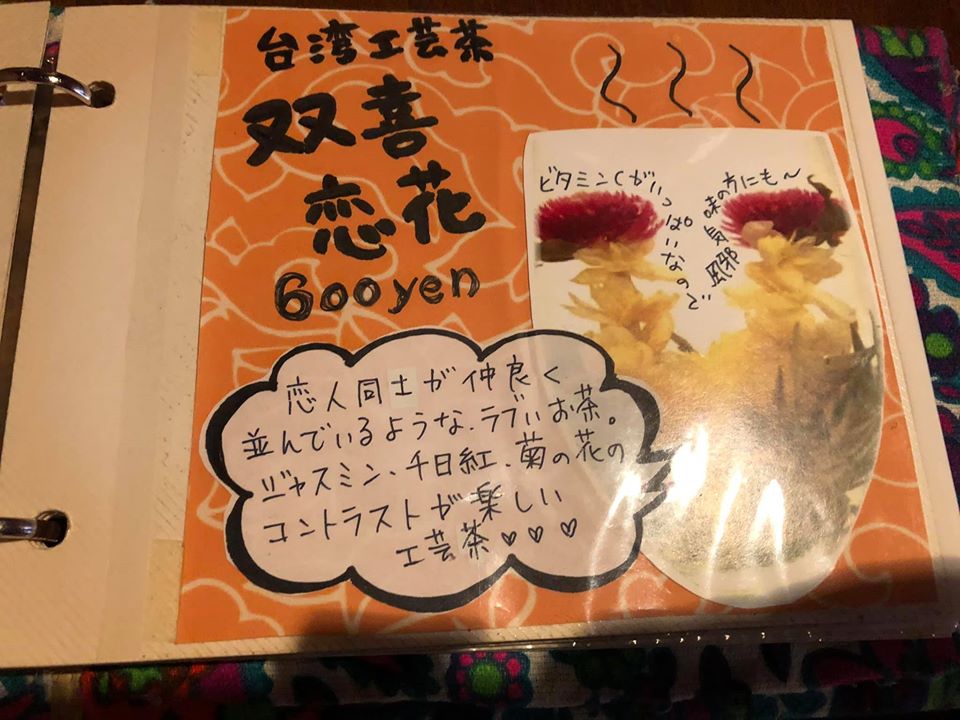 台湾工芸茶
双喜
恋花
600yen
ビタミンCがいっぱいなので
風邪気味の方にも〜
恋人同士が仲良く
並んでいるような、ラブいお茶。
ジャスミン、千日紅、菊の花の
コントラストが楽しい
工芸茶♡♡♡